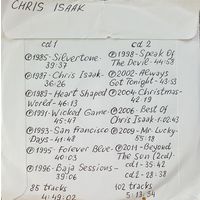 CHRIS ISAAK
cd 1
1985 - Silvertone-
39:37
1987 - Chris Isaak
- 36:26
1989 - Heart Shaped
World - 46:13
1991 - Wicked Game
- 45:47
1993 - San Francisco
Days - 41:48
1995 - Forever Blue-
40:03
1996 - Baja Sessions-
39:06
85 tracks
4:49:02
cd 2
1998 - Speak Of
The Devil - 44:58
2002 - Always
Got Tonight - 43:53
2004 - Christmas-
42:19
2006 - Best Of
Chris Isaak - 1:02:43
2009 - Mr Lucky-
55:18
2011 - Beyond
The Sun (2cd)-
cd1 - 35:42
cd2 - 28:38
102 tracks
5:13:34